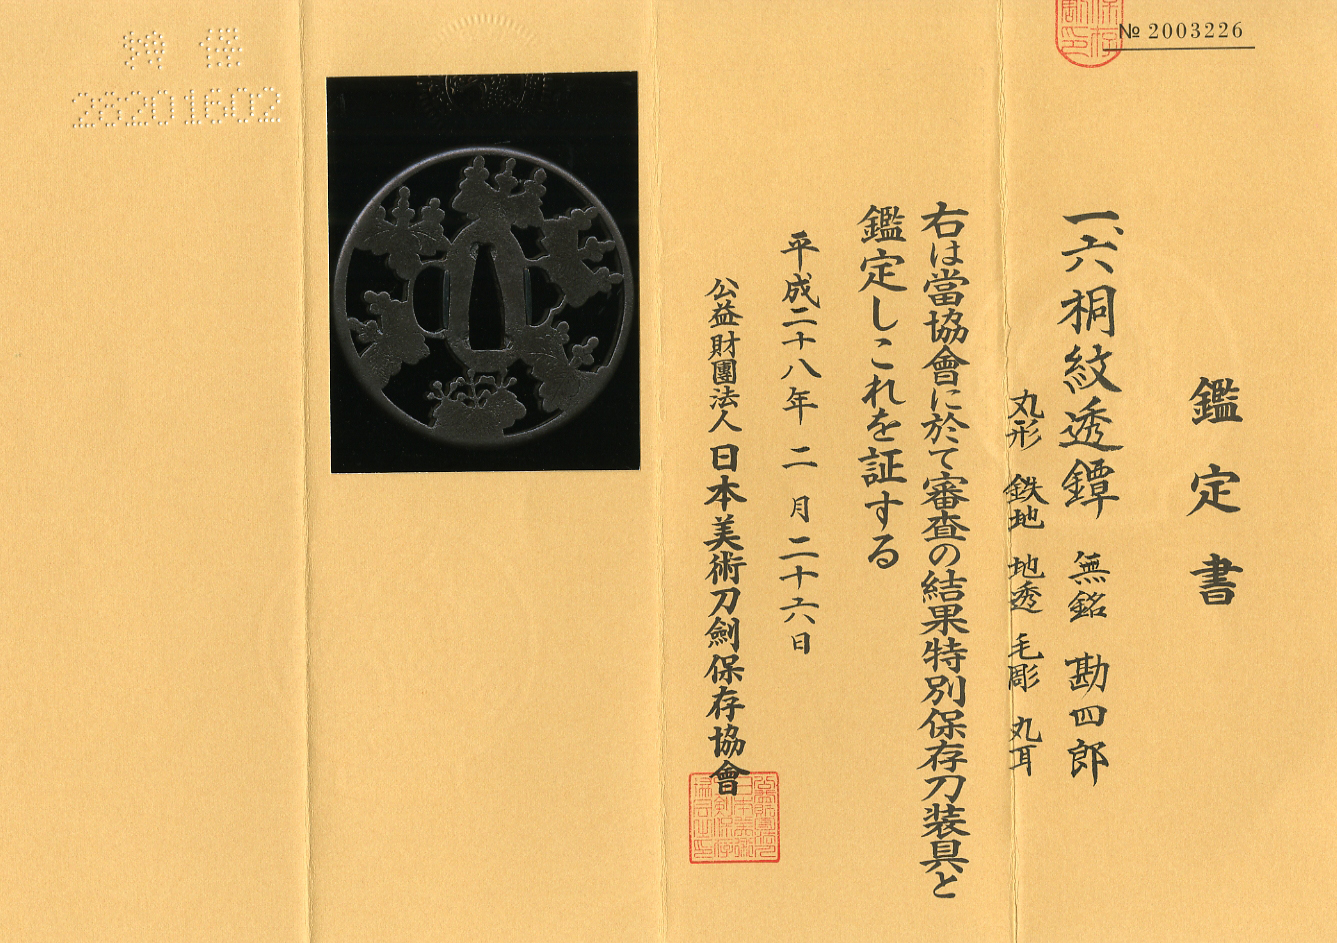 № 2003226
鑑定書
一、六桐紋透鐔 無銘 勘四郎
丸形 鉄地 地透 毛彫 丸耳
右は當協會に於て審査の結果特別保存刀装具と
鑑定しこれを証する
平成二十八年 二 月 二十六日
公益財團法人 日本美術刀劍保存協會
特 保
28201602